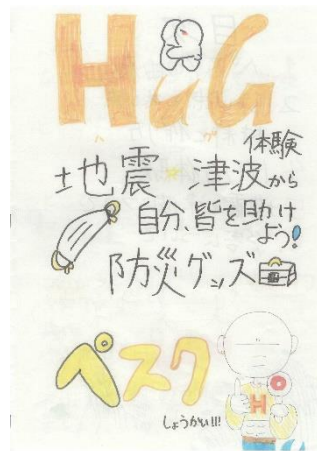 HuG
ハグ
体験
地震・津波から
自分、皆を助け
よう!
防災グッズ
ペスク
しょうかい!!!
H